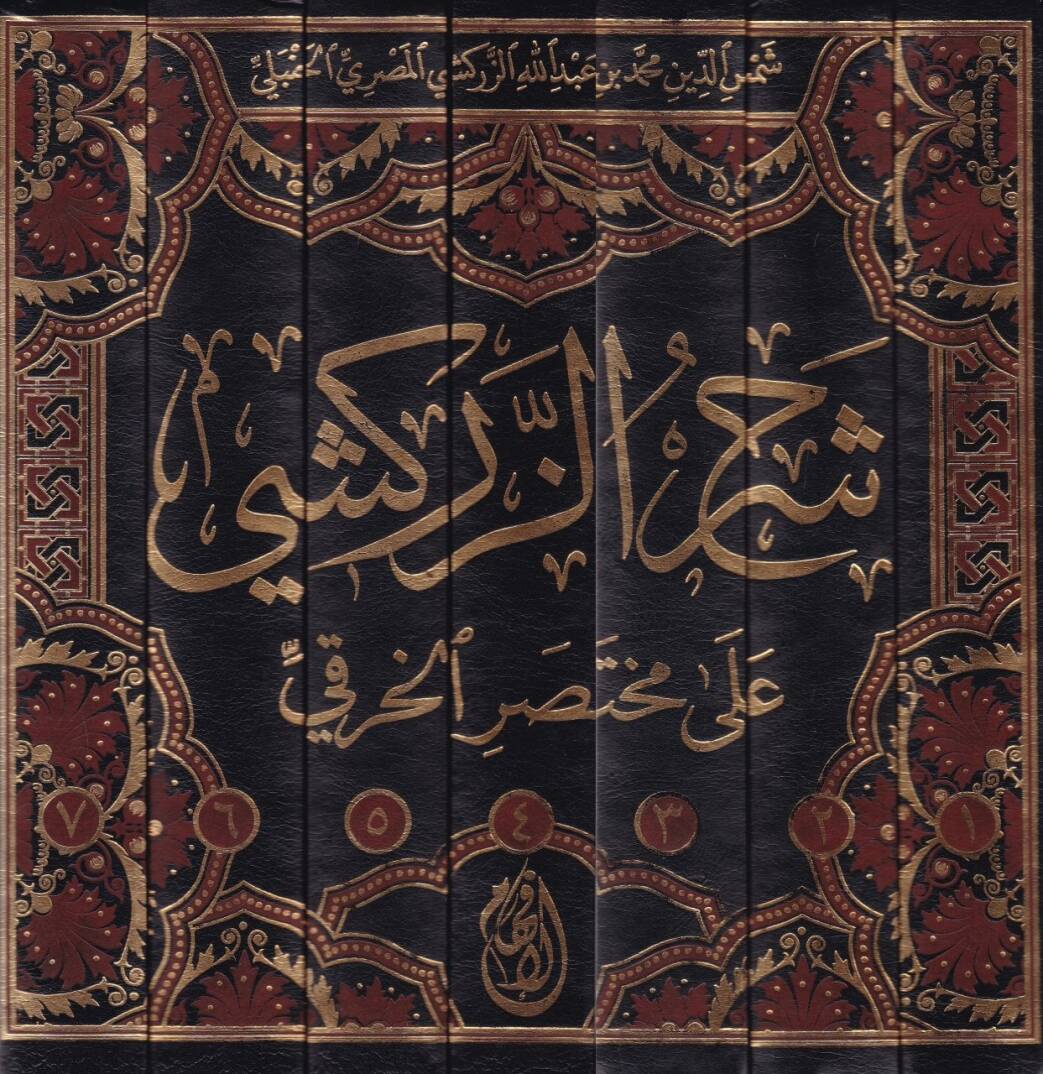 شَمْسِ ٱلدِّينِ مُحَمَّد بن عَبْدِ ٱللهِ ٱلزَّركشي ٱلمَصْرِيِّ ٱلحَنْبَلِيِّ
شَرْحُ الزَّركشي
عَلَى مختَصَرِ ٱلخرقيِّ
١ ٢ ٣ ٤ ٥ ٦ ٧
الأفهام